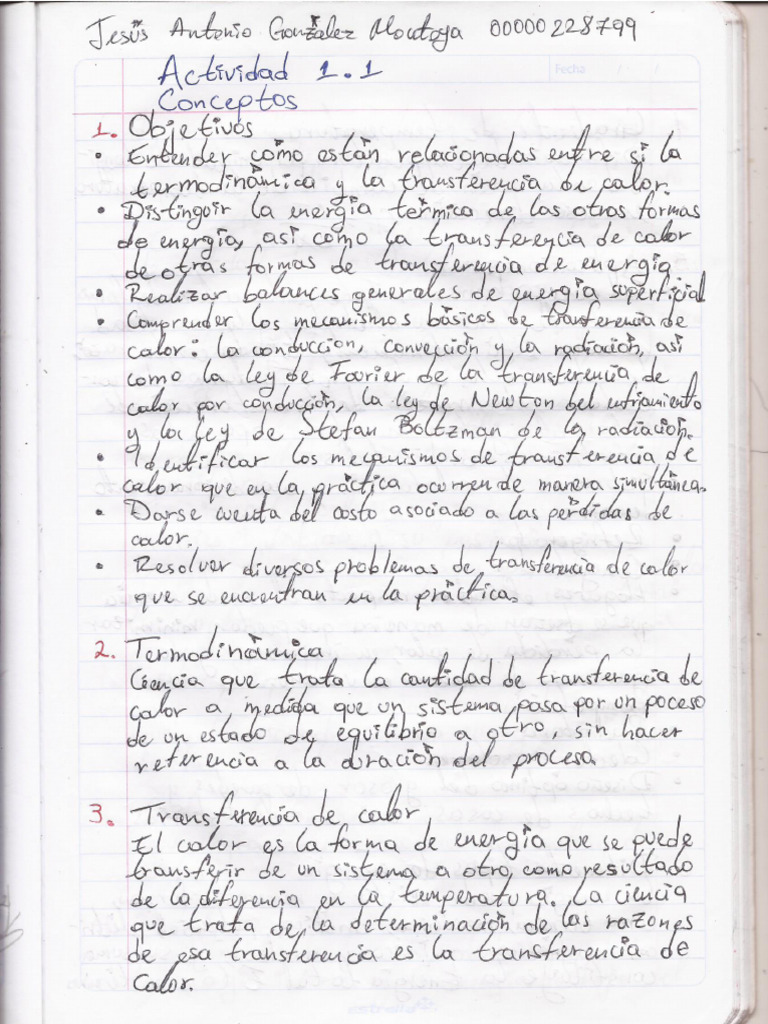 Jesús Antonio González Montoya 00000228799
Actividad 1.1
Fecha
Conceptos
1. Objetivos
• Entender cómo están relacionadas entre si la
termodinámica y la transferencia de calor.
• Distinguir la energía térmica de las otras formas
de energía, asi como la transferencia de calor
de otras formas de transferencia de energía
• Realizar balances generales de energía superficial
• Comprender los mecanismos básicos de transferencia de
calor: la conduccion, convección y la radiación, asi
como la ley de Fourier de la transferencia de
calor por conducción, la ley de Newton del enfriamiento
y la ley de Stefan Boltzman de la radiación.
• Identificar los mecanismos de transferencia de
calor que en la práctica ocurren de manera simultánea.
• Darse cuenta del costo asociado a las perdidas de
calor.
• Resolver diversos problemas de transferencia de calor
que se encuentran en la práctica.
2. Termodinámica
Ciencia que trata la cantidad de transferencia de
calor a medida que un sistema pasa por un poceso
de un estado de equilibrio a otro, sin hacer
referencia a la duración del proceso.
3. Transferencia de calor
El calor es la forma de energía que se puede
transferir de un sistema a otro como resultado
de la diferencia en la temperatura. La ciencia
que trata de la determinación de las razones
de esa transferencia es la transferencia de
calor.